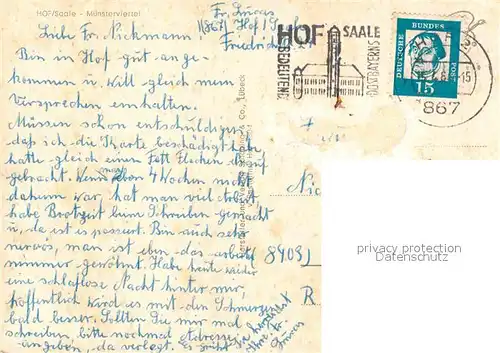 HOF/Saale - Münsterviertel
Fr. Lucas
867 Hof/S
Friedrich
Liebe Fr. Nickmann!
Bin in Hof gut ange-
kommen u. will gleich mein
Versprechen einhalten.
Müssen schon entschuldigen
daß ich die Karte beschädigt habe
hatte gleich einen Fett Flecken drauf
gebracht. Wenn man eben 4 Wochen nicht
daheim war, hat man viel Arbeit,
habe Brotzeit beim Schreiben gemacht
u. da ist es passiert. Bin auch sehr
nervös, man ist eben das arbeiten
nimmer gewöhnt. Habe heute wieder
eine schlaflose Nacht hinter mir,
hoffentlich wird es mit den Schmerzen
bald besser. Sollten Sie mir mal
schreiben bitte nochmal Adresse
angeben, da verlegt. Es grüßt
Sie herzlichst
Ihre Fr.
Lucas
HOF SAALE
BEDEUTENDE
NORDBAYERNS
DEUTSCHE BUNDES POST
15
15
867
Co., Lübeck
8903
R
privacy protection
datenschutz